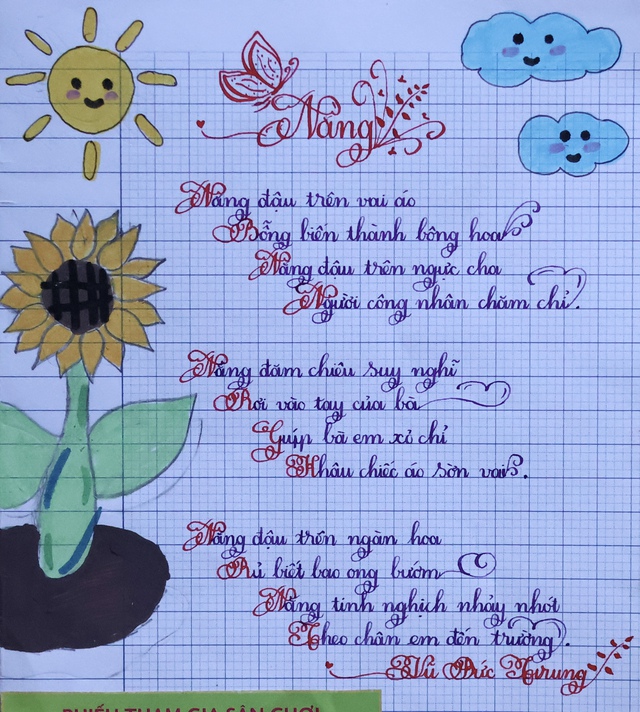 Nắng
Nắng đậu trên vai áo
Bỗng biến thành bông hoa
Nắng đậu trên ngực cha
Người công nhân chăm chỉ.
Nắng đăm chiêu suy nghĩ
Rơi vào tay của bà
Giúp bà em xỏ chỉ
Khâu chiếc áo sờn vai.
Nắng đậu trên ngàn hoa
Rủ biết bao ong bướm
Nắng tinh nghịch nhảy nhót
Theo chân em đến trường.
Vũ Đức Trung
PHIẾU THAM GIA SÂN CHƠI